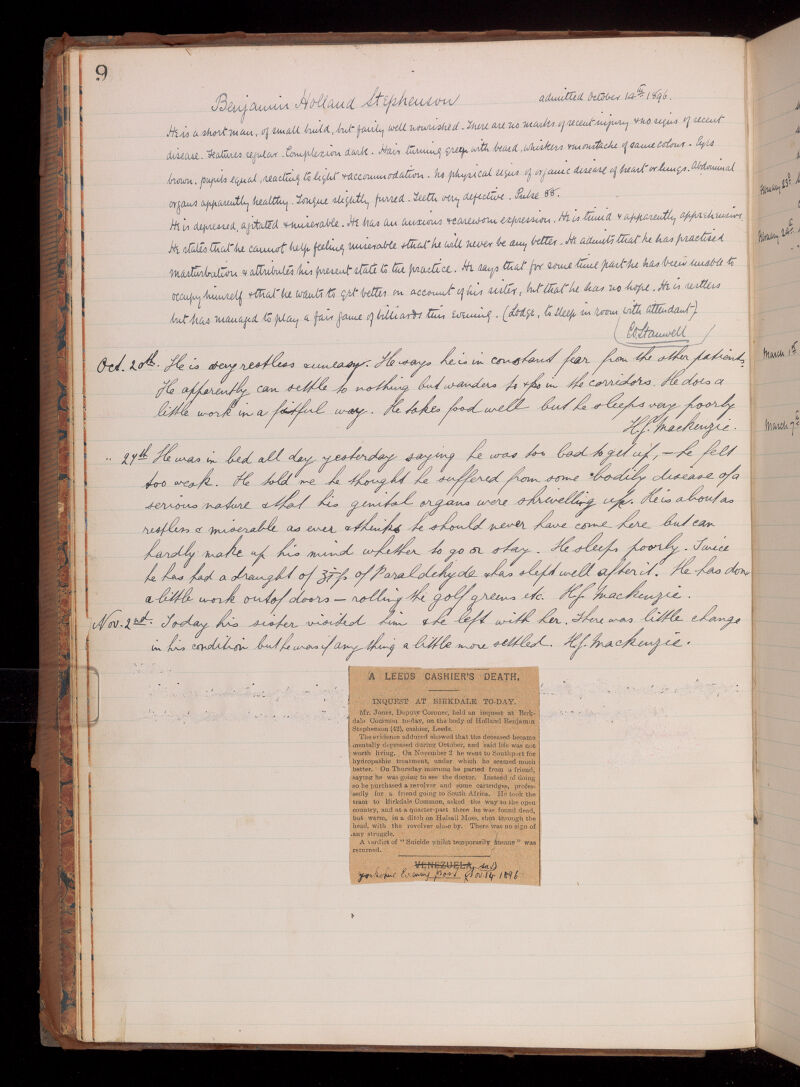 9
Benjamin Holland Stephenson admitted October 14th 1896.
He is a short man, of small build, but fairly well nourished. There are no marks of recent injury & no signs of recent
disease. Features regular. Complexion dark. Hair turning grey with beard, whiskers & moustache of same colour. Eyes
brown, pupils equal, reacting to light & accommodation. No physical signs of organic disease of heart or lungs. Abdominal
organs apparently healthy. Tongue slightly furred. Teeth very defective. Pulse 88.
He is depressed, agitated & miserable. He has an anxious & careworn expression. He is timid & apparently apprehensive.
He states that he cannot help feeling miserable & that he will never be any better. He admits that he has practised
masturbation & attributes his present state to the practice. He says that for some time past he has been unable to
occupy himself & that he wants to get better on account of his sister, but that he has no hope. He is restless
but has managed to play a fair game of billiards this evening. (Lodge, to sleep in room with attendant)
Stanwell
Oct. 20th. He is very restless & uneasy. He says he is in constant fear from the other patients.
He apparently can settle to nothing but wanders to & fro in the corridors. He does a
little work in a fitful way. He takes food well but he sleeps very poorly
H.J. Mackenzie.
" 27th He was in bed all day yesterday saying he was too bad to get up, – he felt
too weak. He told me he thought he suffered from some bodily disease of a
serious nature & that his genital organs were shrivelling up. He is about as
restless & miserable as ever & thinks he should never have come here but can
hardly make up his mind whether to go or stay. He sleeps poorly. Twice
he has had a draught of of Paraldehyde & has slept well after it. He has done
a little work out of doors – rolling the golf greens etc. H.J. Mackenzie.
Nov. 2nd. Today his sister visited him & he left with her. There was little change
in his condition but he was if any thing a little more settled. H.J. Mackenzie.
A LEEDS CASHIER'S DEATH.
INQUEST AT BIRKDALE TO-DAY.
Mr. Jones, Deputy Coroner, held an inquest at Birk-
dale Common to-day, on the body of Holland Benjamin
Stephenson (42), cashier, Leeds.
The evidence adduced showed that the deceased became
mentally depressed during October, and said life was not
worth living. On November 2 he went to Southport for
hydropathic treatment, under which he seemed much
better. On Thursday morning he parted from a friend,
saying he was going to see the doctor. Instead of doing
so he purchased a revolver and some cartridges, profes-
sedly for a friend going to South Africa. He took the
tram to Birkdale Common, asked the way to the open
country, and at a quarter-past three he was found dead,
but warm, in a ditch on Halsall Moss, shot through the
head, with the revolver close by. There was no sign of
any struggle.
A verdict of "Suicide whilst temporarily insane" was
returned.
VENEZUELA
Yorkshire Evening Post Nov 14 1896
February 23rd
February 24th
March 1st
March 7th